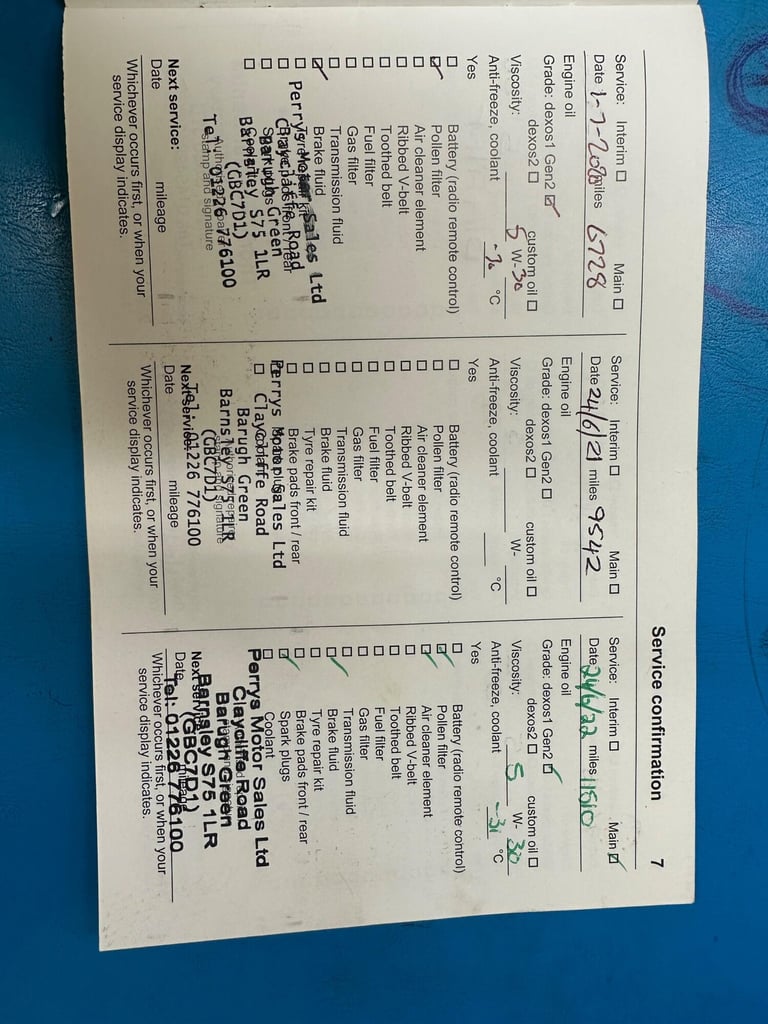 Service confirmation
7
Service: Interim ☐ Main ☐
Date 1-7-2020 miles 6728
Engine oil
Grade: dexos1 Gen2 ☑
dexos2 ☐ custom oil ☐
Viscosity: 5 W-30
Anti-freeze, coolant °C
Yes
☐ Battery (radio remote control)
☑ Pollen filter
☐ Air cleaner element
☐ Ribbed V-belt
☐ Toothed belt
☐ Fuel filter
☐ Gas filter
☐ Transmission fluid
☑ Brake fluid
Perrys Motor Sales Ltd
Claycliffe Road
Barugh Green
Barnsley S75 1LR
(GBC7D1)
Tel: 01226 776100
stamp and signature
Next service:
Date mileage
Whichever occurs first, or when your
service display indicates.
Service: Interim ☐ Main ☐
Date 24/6/21 miles 9542
Engine oil
Grade: dexos1 Gen2 ☐
dexos2 ☐ custom oil ☐
Viscosity: W-
Anti-freeze, coolant °C
Yes
☐ Battery (radio remote control)
☐ Pollen filter
☐ Air cleaner element
☐ Ribbed V-belt
☐ Toothed belt
☐ Fuel filter
☐ Gas filter
☐ Transmission fluid
☐ Brake fluid
☐ Tyre repair kit
☐ Brake pads front / rear
Perrys Motor Sales Ltd
Claycliffe Road
Barugh Green
Barnsley S75 1LR
(GBC7D1)
Tel: 01226 776100
Next service:
Date mileage
Whichever occurs first, or when your
service display indicates.
Service: Interim ☐ Main ☑
Date 24/6/22 miles 11510
Engine oil
Grade: dexos1 Gen2 ☑
dexos2 ☐ custom oil ☐
Viscosity: 5 W-30
Anti-freeze, coolant -31 °C
Yes
☐ Battery (radio remote control)
☑ Pollen filter
☑ Air cleaner element
☐ Ribbed V-belt
☐ Toothed belt
☐ Fuel filter
☐ Gas filter
☐ Transmission fluid
☑ Brake fluid
☐ Tyre repair kit
☐ Brake pads front / rear
☑ Spark plugs
☐ Coolant
Perrys Motor Sales Ltd
Claycliffe Road
Barugh Green
Barnsley S75 1LR
(GBC7D1)
Tel: 01226 776100
Next service:
Date mileage
Whichever occurs first, or when your
service display indicates.